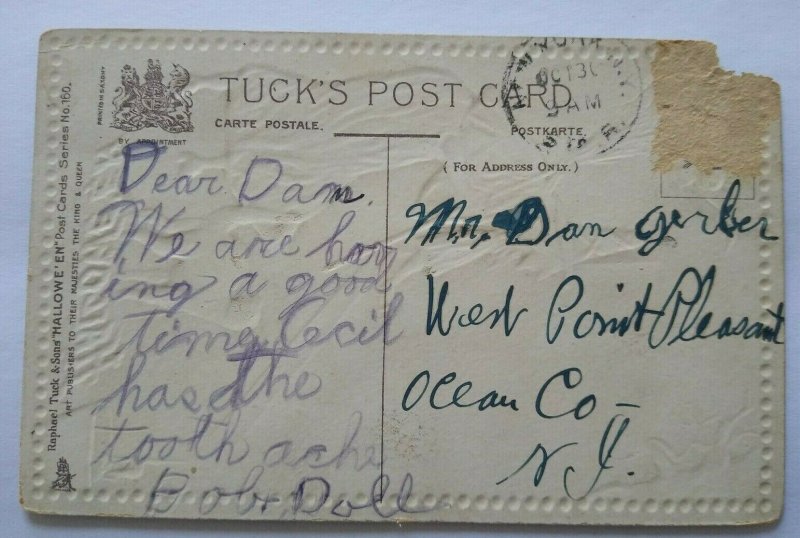 TUCK'S POST CARD
CARTE POSTALE.
POSTKARTE.
BY APPOINTMENT
(FOR ADDRESS ONLY.)
PRINTED IN SAXONY
Raphael Tuck & Sons' "HALLOWE'EN" Post Cards Series No. 160.
ART PUBLISHERS TO THEIR MAJESTIES THE KING & QUEEN
OCT 30
9 AM
N.Y.
Dear Dan.
We are hav
ing a good
time. Cecil
has a the
tooth ache
Bob & Doll
Mr. Dan Gerber
West Point Pleasant
Ocean Co —
N.J.